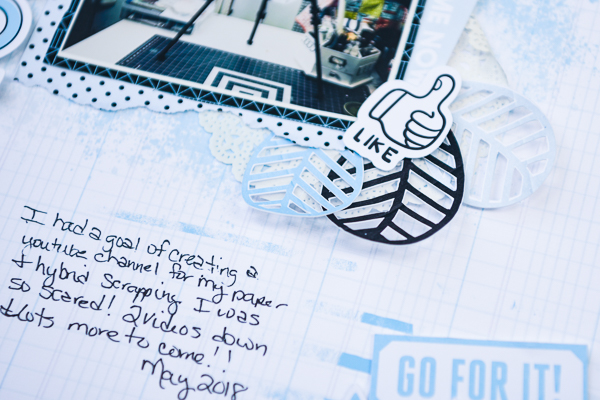 ME NO
LIKE
I had a goal of creating a
youtube channel for my paper
& hybrid Scrapping. I was
so scared! 2 videos down
& lots more to come!!
May 2018
GO FOR IT!